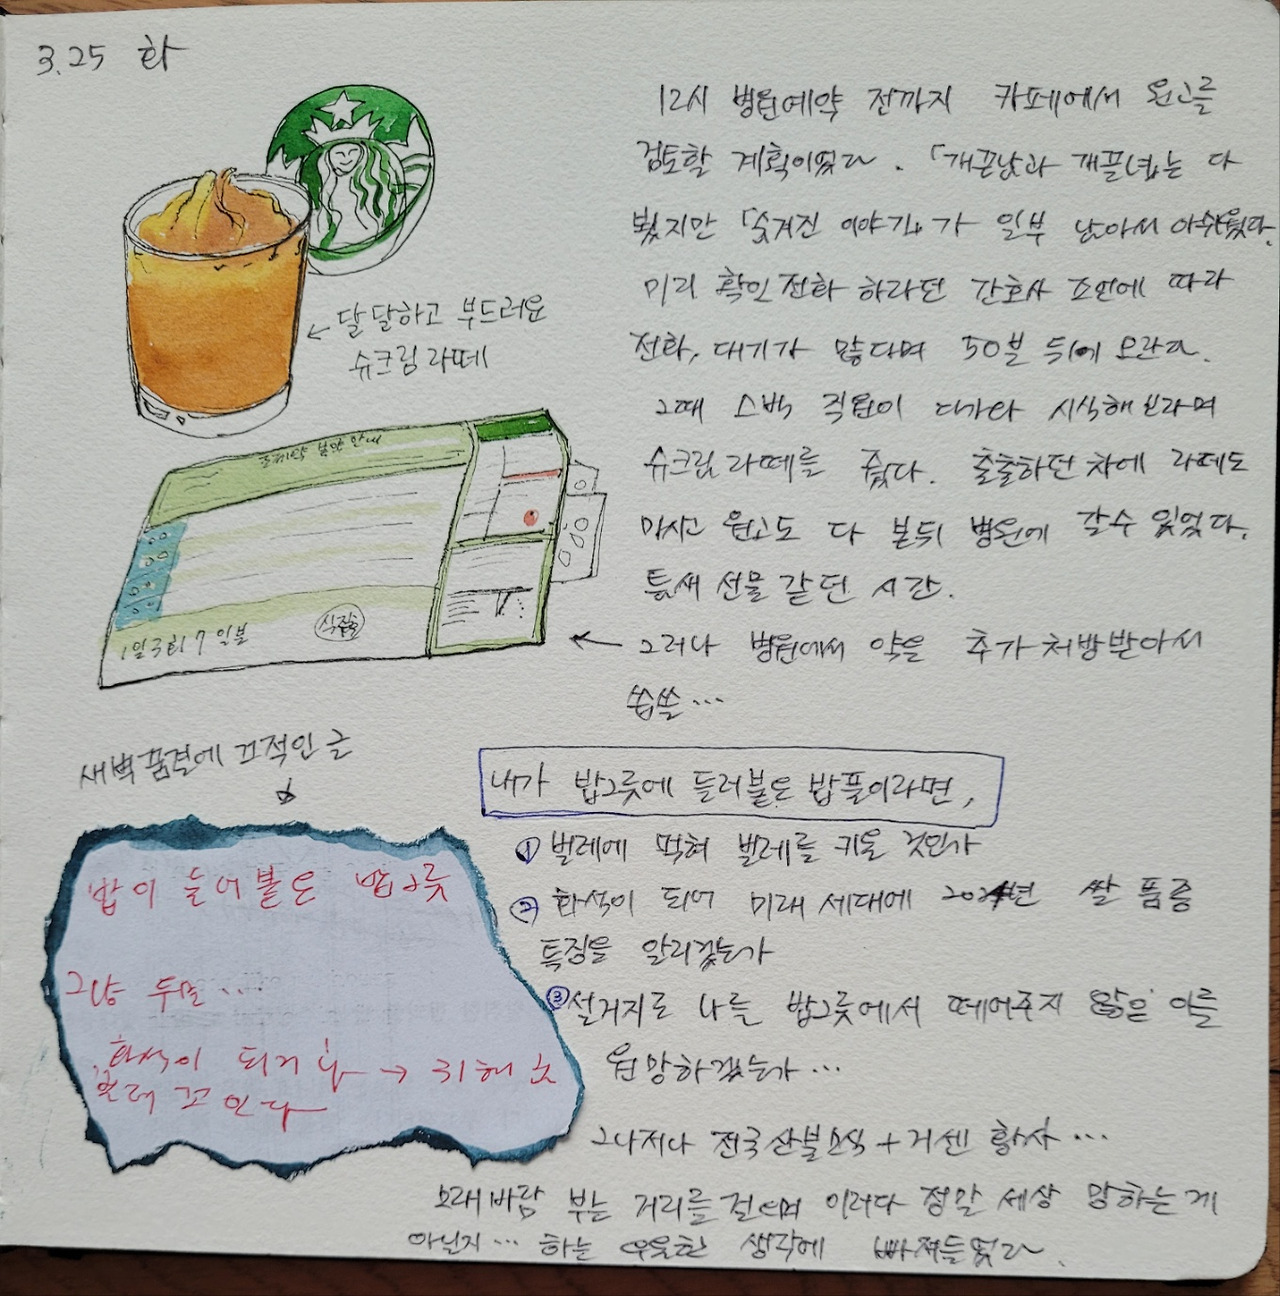 3.25 화
12시 병원예약 전까지 카페에서 원고를
검토할 계획이었다. 「개끈낫과 개끌넙」는 다
봤지만 「숨겨진 이야기」가 일부 남아서 아쉬웠다.
미리 확인전화 하라던 간호사 조언에 따라
전화, 대기가 많다며 50분 뒤에 오란다.
그때 스벅 직원이 다가와 시식해보라며
슈크림라떼를 줬다. 출출하던 차에 라떼도
마시고 원고도 다 본뒤 병원에 갈수 있었다.
틈새 선물 같던 시간.
← 달달하고 부드러운
슈크림라떼
조제약 복약안내
1일 3회 7일분
식전
← 그러나 병원에서 약을 추가처방받아서
씁쓸…
새벽 꿈결에 끄적인 글
밥이 눌어붙은 밥그릇
그냥 두면…
화석이 되거나 →
벌레 꼬인다
내가 밥그릇에 들러붙은 밥풀이라면,
① 벌레에 먹혀 벌레를 키울 것인가
② 화석이 되어 미래세대에 년 쌀 품종
특징을 알리겠는가
③ 설거지로 나를 밥그릇에서 떼어주지 않은 이를
원망하겠는가…
그나저나 전국산불소식 + 거센 황사…
모래바람 부는 거리를 걸으며 이러다 정말 세상 망하는게
아닌지… 하는 우울한 생각에 빠져들었다.